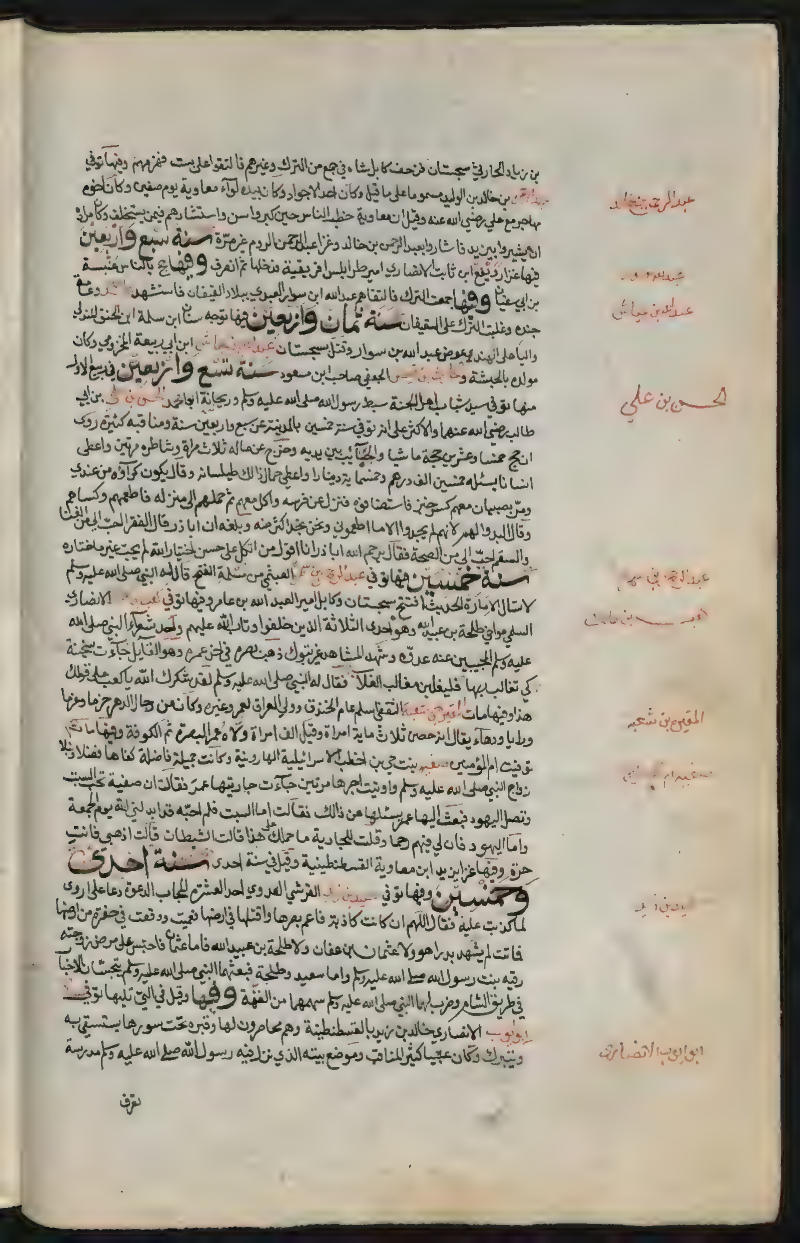 بن زياد الحارثي سجستان فزحف كابل شاه في جمع من الترك وغيرهم فالتقوا على بست فهزمهم وفيها توفي
عبد الرحمن بن خالد بن الوليد مسموما على ما قيل وكان احد الاجواد وكان بيده لواء معاوية يوم صفين وكان اخوه
عبد الرحمن بن خالد
مهاجر مع علي رضي الله عنه وقيل ان معاوية خطب الناس حين كبر واسن واستشارهم فيمن يستخلف وكان مراده
ان يشيروا بيزيد فاشاروا بعبد الرحمن بن خالد وغزا عبد الرحمن الروم غير مرة سنة سبع واربعين
فيها غزا رويفع ابن ثابت الانصاري امير طرابلس افريقية فدخلها ثم انصرف وفيها حج بالناس عنبسة
بن ابي سفيان وفيها جمعت الترك فالتقاهم عبد الله ابن سوار العبدي ببلاد القيقان فاستشهد وعامة
جنده وغلبت الترك على القيقان سنة ثمان واربعين فيها توجه سنان ابن سلمة ابن المحبق الهذلي
عبد الله بن عياش
واليا على الهند عوض عبد الله بن سوار وقتل بسجستان عبد الله بن عياش ابن ابي ربيعة المخزومي وكان
مولده بالحبشة و بن قيس الجعفي صاحب ابن مسعود سنة تسع واربعين في ربيع الاول
منها توفي سيد شباب اهل الجنة سبط رسول الله صلى الله عليه وسلم وريحانته ابو محمد الحسن بن علي بن ابي
الحسن بن علي
طالب رضي الله عنهما والاكثر على انه توفي سنة خمسين بالمدينة عن سبع واربعين سنة ومناقبه كثيرة روى
انه حج خمسا وعشرين حجة ماشيا والجنائب بين يديه وخرج عن ماله ثلاث مراة وشاطره مرتين واعطى
انسانا يسئله خمسين الف درهم وخمسماية دينارا واعطى حمال ذالك طيلسانه وقال يكون كراؤه من عندي
ومر بصبيان معهم كسر خبز فاستضافوه فنزل عن فرسه واكل معهم ثم حملهم الى منزله فاطعمهم وكساهم
وقال اليد والهم لانهم لم يجدوا الا ما اطعموني ونحن نجد اكثر منه وبلغه ان ابا ذر قال الفقر احب الي من الغنا
والسقم احب الي من الصحة فقال يرحم الله ابا ذر انا اقول من اتكل على حسن اختيار الله لم يحب غير ما اختاره
سنة خمسين فيها توفي عبد الرحمن بن سمرة العبشمي من مسلمة الفتح قال له النبي صلى الله عليه وسلم
عبد الرحمن بن سمرة
لا تسال الامارة الحديث افتتح سجستان وكابل اميرا لعبد الله بن عامر وفيها توفي كعب الانصاري
السلمي مواخي طلحة بن عبيد الله وهو احدى الثلاثة الذين خلفوا وتاب الله عليهم واحد شعراء النبي صلى الله
عليه وسلم المجيبين عنه عدوه وشهد المشاهد غير تبوك ذهب بصره في اخر عمره وهو القايل جاءت سخينة
كي تغالب ربها فليغلبن مغالب الغلاب فقال له النبي صلى الله عليه وسلم لقد شكرك الله يا كعب على قولك
هذا وفيها مات المغيرة بن شعبة الثقفي اسلم عام الخندق وولي العراق لعمر وغيره وكان من رجال الدهر حزما وعزما
المغيرة بن شعبه
ورايا ودهاء يقال انه حصن ثلاث ماية امراة وقيل الف امراة ولاه عمر البصرة ثم الكوفة وفيها
توفيت ام المؤمنين صفية بنت حيي بن اخطب الاسرائيلية الهارونية وكانت جميلة فاضلة كفاها فضلا
صفيه ام المؤمنين
زواج النبي صلى الله عليه وسلم واوتيت اجرها مرتين جاءت جاريتها عمر فقالت ان صفية تحب السبت
وتصل اليهود فبعث اليها عمر يسئلها عن ذالك فقالت اما السبت فلم احبه فدابدلني الله يوم الجمعة
واما اليهود فان لي فيهم رحما وقلت للجارية ما حملك على هذا قالت الشيطان قالت اذهبي فانت
حرة وفيها غزا يزيد ابن معاوية القسطنطينية وقيل في سنة احدى سنة احدى
وخمسين وفيها توفي سعيد بن زيد القرشي العدوي احد العشرة المجاب الدعوة دعا على اروى
سعيد بن زيد
لما كذبت عليه فقال اللهم ان كانت كاذبة فاعم بصرها واقتلها في ارضها فعميت ووقعت في حفرة من ارضها
فماتت لم يشهد بدرا هو ولا عثمان بن عفان ولا طلحة بن عبيد الله فاما عثمان فاحتبس على مرض زوجته
رقيه بنت رسول الله صلى الله عليه وسلم واما سعيد وطلحة فبعثهما النبي صلى الله عليه وسلم يتجسسان الاخبار
في طريق الشام وضرب لهما النبي صلى الله عليه وسلم سهمهما من الغنيمة وفيها وقيل في التي تليها توفي
ابو ايوب الانصاري خالد بن زيد بالقسطنطينة وهم محاصرون لها وقبره تحت سورها يستسقى به
ابو ايوب الانصاري
ويتبرك وكان عقبيا كثير المناقب وموضع بيته الذي نزل فيه رسول الله صلى الله عليه وسلم مدرسة
تعرف